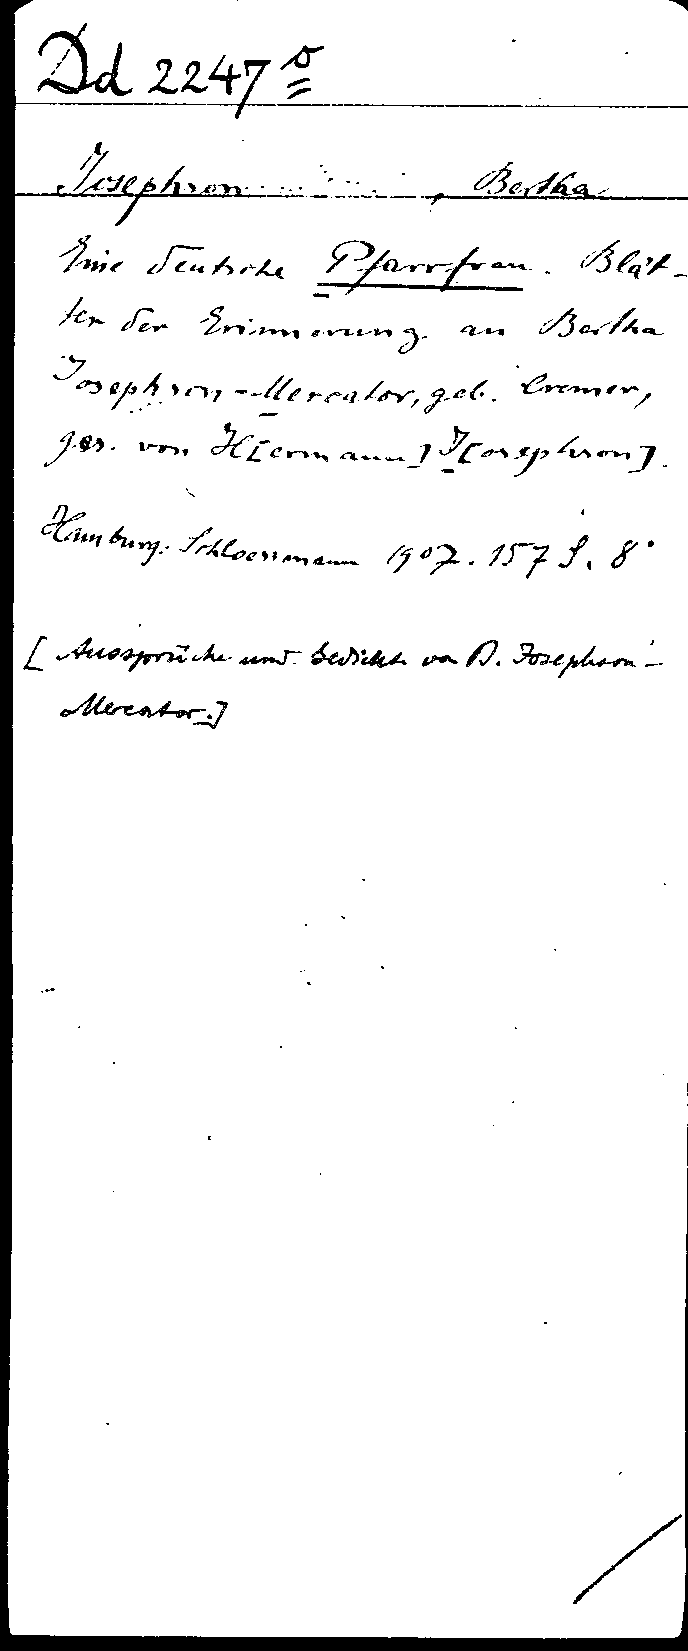 Dd 2247 o
Josephson, Bertha
Eine deutsche Pfarrfrau. Blät-
ter der Erinnerung an Bertha
Josephson-Mercator, geb. Cremer,
ges. von H[ermann] J[osephson].
Hamburg: Schloessmann 1907. 157 S. 8°
[Aussprüche und Gedichte von B. Josephson-
Mercator.]